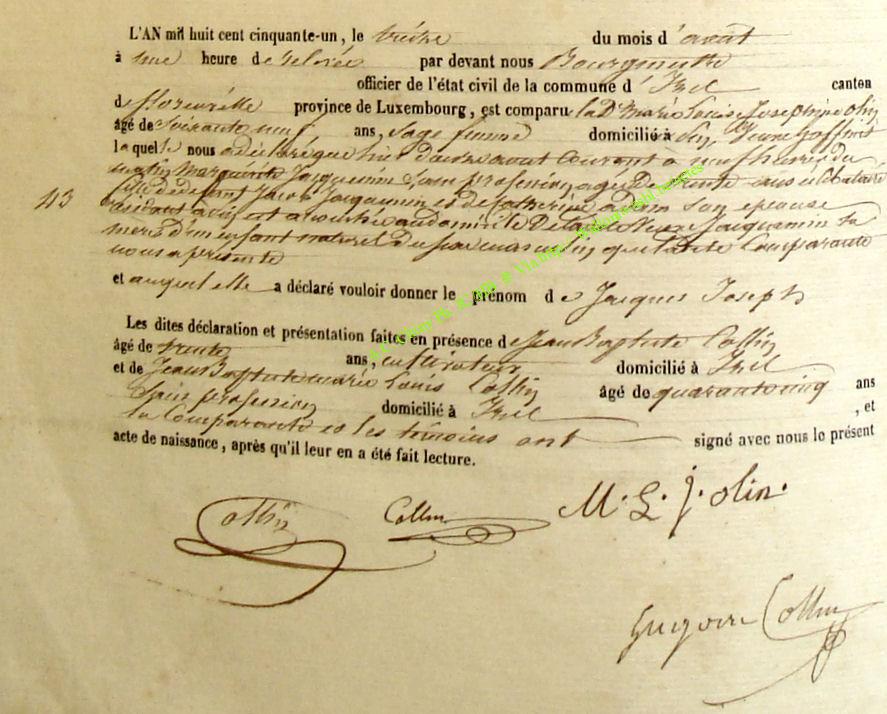 L'AN mil huit cent cinquante-un, le treize du mois d'août
à une heure de relevée par devant nous Bourgmestre
officier de l'état civil de la commune d'Izel canton
de florenville province de Luxembourg, est comparu la De Marie Louise Josephine olin
âgé de soixante neuf ans, sage femme domicilié à
laquelle nous a déclaré que hier douze aout courant à neuf heures du
matin Marguerite Jacquemin sans profession agée de trente ans célibataire
fille de defunt Jacob Jacquemin et de Catherine adam son épouse
43
résidant à Izel est accouchée au domicile de la dite Jacquemin sa
mère d'un enfant naturel du sexe masculin que la dite Comparante
nous a présenté
et auquel elle a déclaré vouloir donner le prénom de Jacques Joseph
Les dites déclaration et présentation faites en présence de Jean Baptiste Collin
âgé de trente ans, cultivateur domicilié à Izel
et de Jean Baptiste marie Louis Collin âgé de quarante cinq ans
sans profession domicilié à Izel , et
la Comparante et les témoins ont signé avec nous le présent
acte de naissance, après qu'il leur en a été fait lecture.
Collin Collin M. L. J. olin.
Grégoire Collin